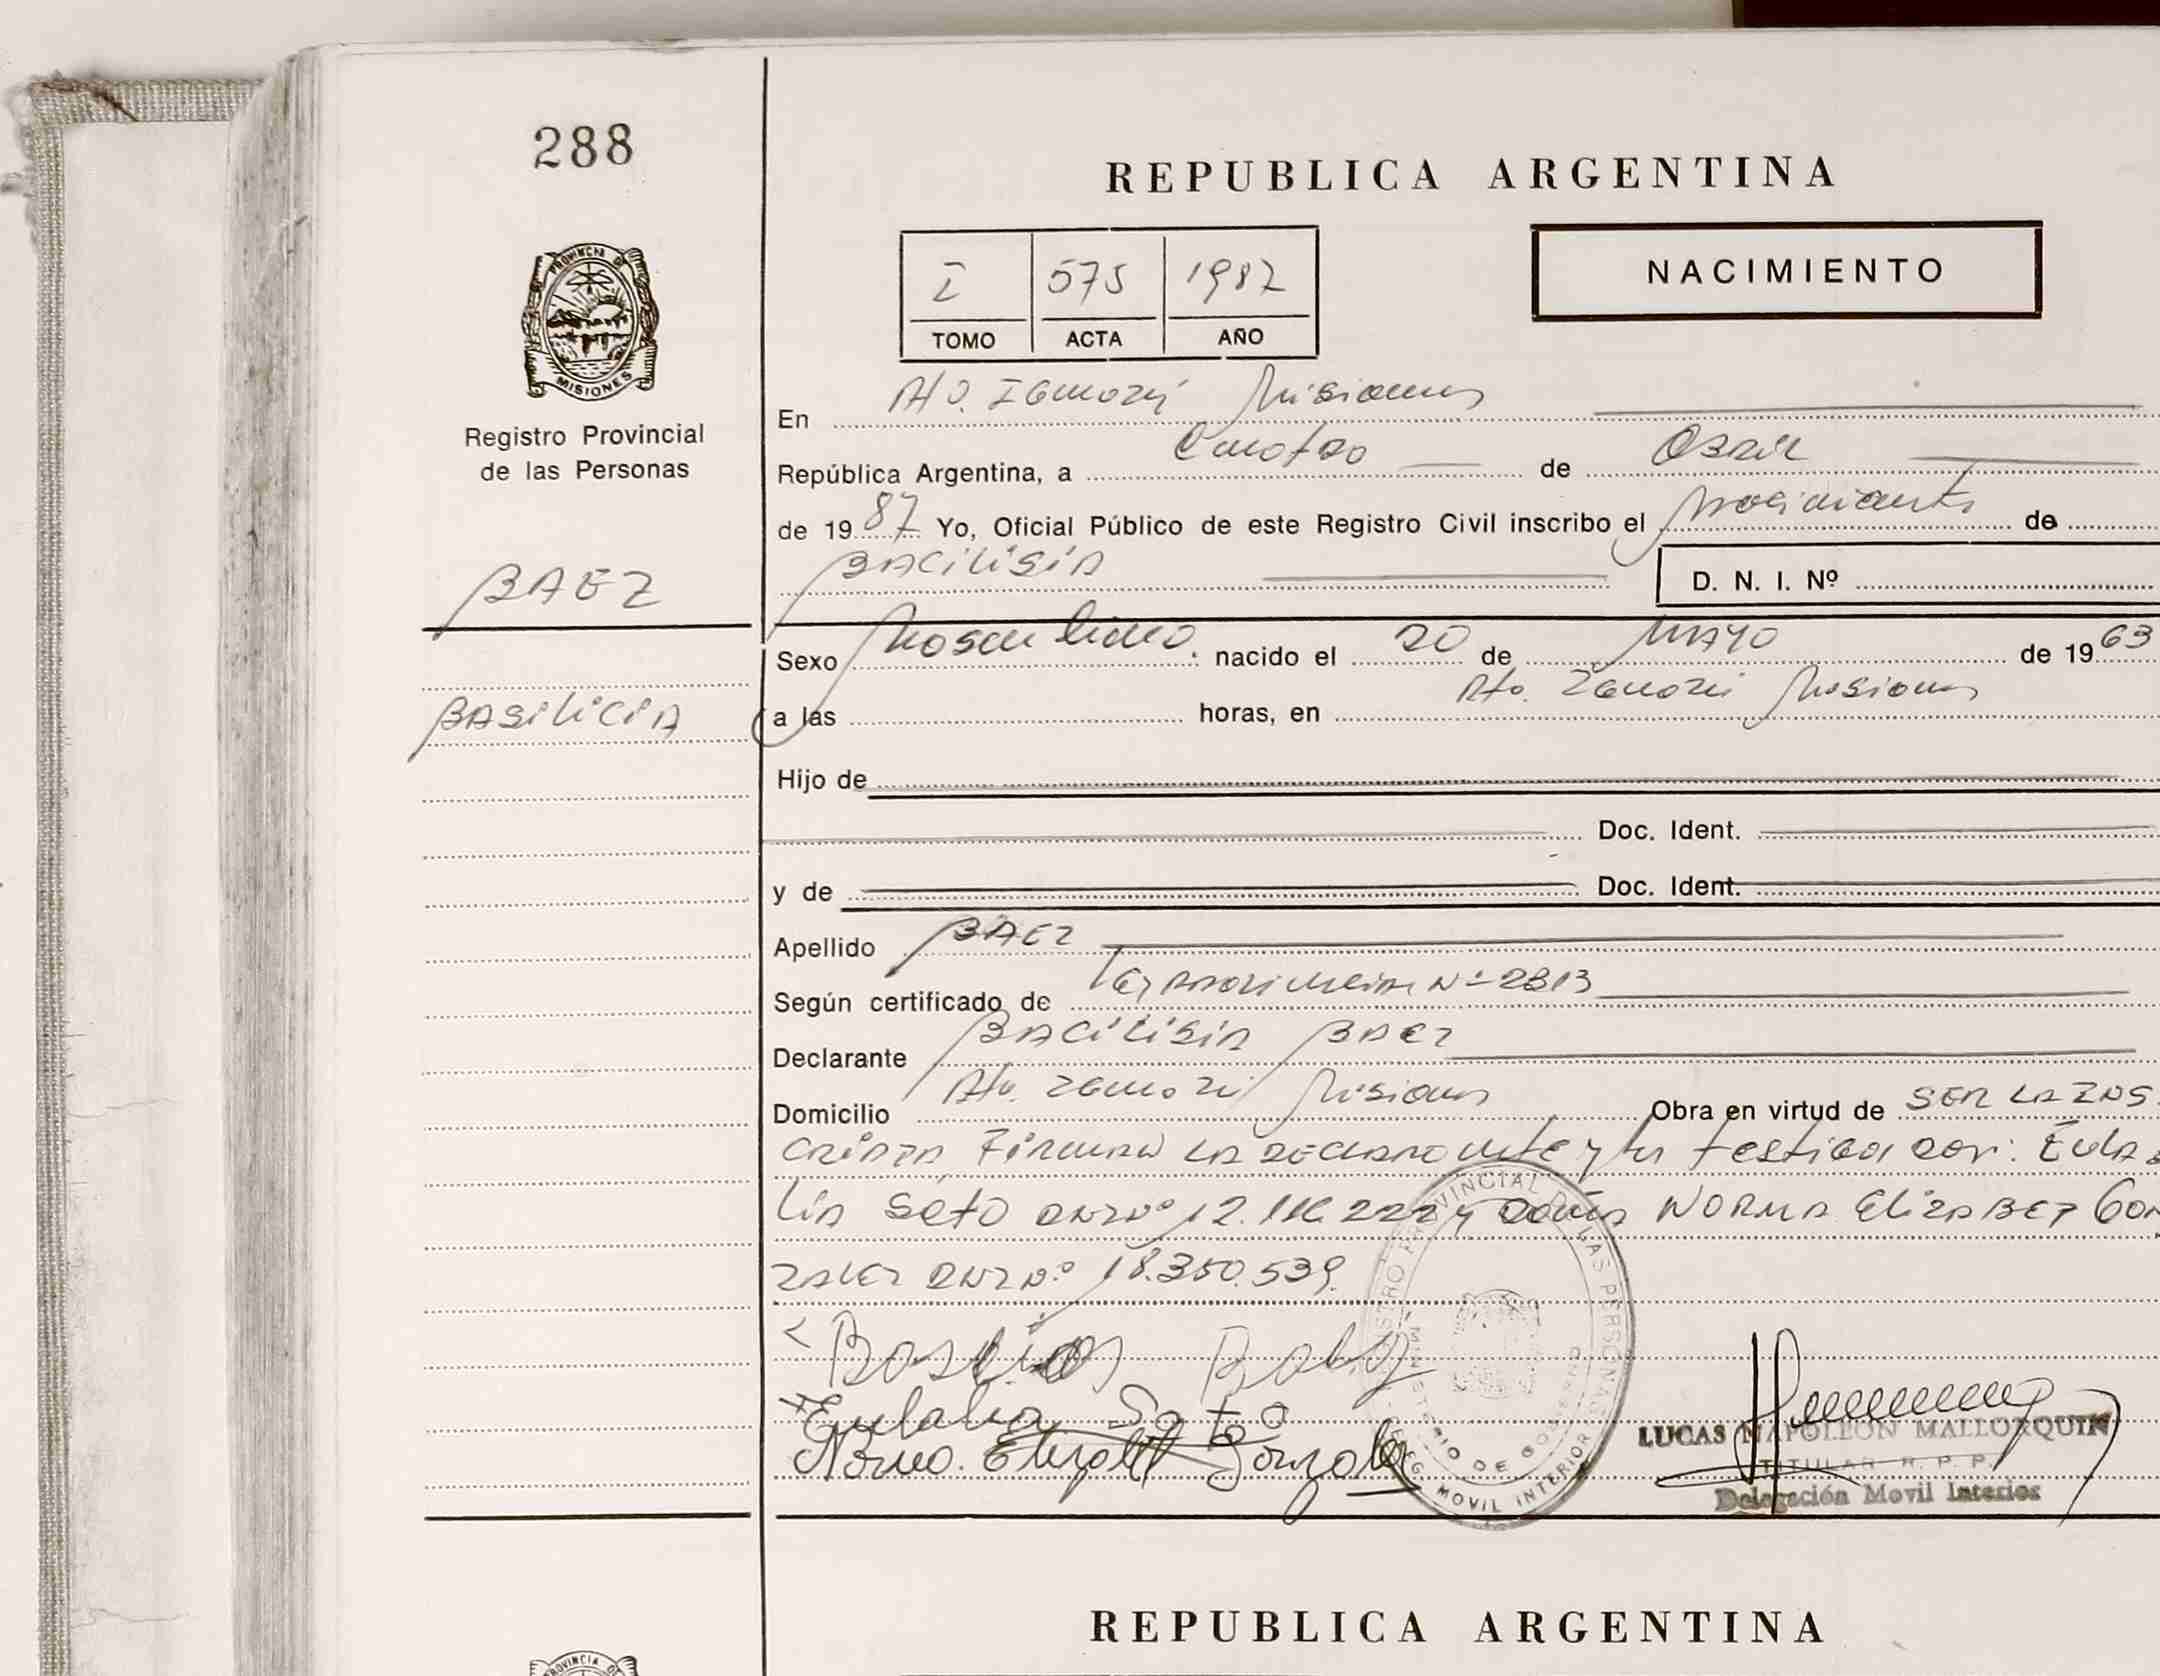 288
REPUBLICA ARGENTINA
PROVINCIA DE
MISIONES
Registro Provincial
de las Personas
I 575 1987
TOMO ACTA AÑO
NACIMIENTO
En Pto. Misiones
República Argentina, a Cuatro de Abril
de 1987 Yo, Oficial Público de este Registro Civil inscribo el nacimiento de
BAEZ
BACILISIA
D. N. I. Nº
Sexo Masculino. nacido el 20 de MAYO de 1963
BASILICIA
a las horas, en Pto. Misiones
Hijo de
Doc. Ident.
y de Doc. Ident.
Apellido BAEZ
Según certificado de Nº 2813
Declarante BACILISIA BAEZ
Domicilio Pto. Misiones Obra en virtud de SER LA INS
CRIPTA FIRMAN LA DECLARANTE y los testigos DON: EULA
LIA SOTO DNI Nº 12. 222 y DOÑA NORMA ELIZABET GON
ZALEZ DNI Nº 18.350.539.
Eulalia Soto
Norma Elizabet Gonzalez
REGISTRO PROVINCIAL DE LAS PERSONAS
MINISTERIO DE GOBIERNO
DELEG. MOVIL INTERIOR
LUCAS NAPOLEON MALLORQUIN
TITULAR R. P. P.
Delegación Movil Interior
REPUBLICA ARGENTINA
PROVINCIA DE